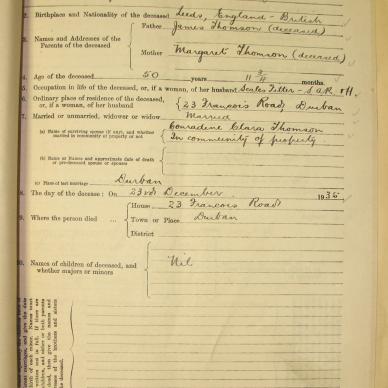 2. Birthplace and Nationality of the deceased Leeds, England - British
Father James Thomson (deceased)
3. Names and Addresses of the
Parents of the deceased
Mother Margaret Thomson (deceased)
4. Age of the deceased 50 years 11 3/4 months.
5. Occupation in life of the deceased, or, if a woman, of her husband Scales Fitter - S.A.R. & H.
6. Ordinary place of residence of the deceased,
or, if a woman, of her husband 23 Francois Road, Durban
7. Married or unmarried, widower or widow Married
(a) Name of surviving spouse (if any), and whether
married in community of property or not
Conradene Clara Thomson
In community of property
(b) Name or Names and approximate date of death
of pre-deceased spouse or spouses
(c) Place of last marriage Durban
8. The day of the decease: On 23rd December 1935
House 23 Francois Road
9. Where the person died Town or Place Durban
District
10. Names of children of deceased, and
whether majors or minors
Nil